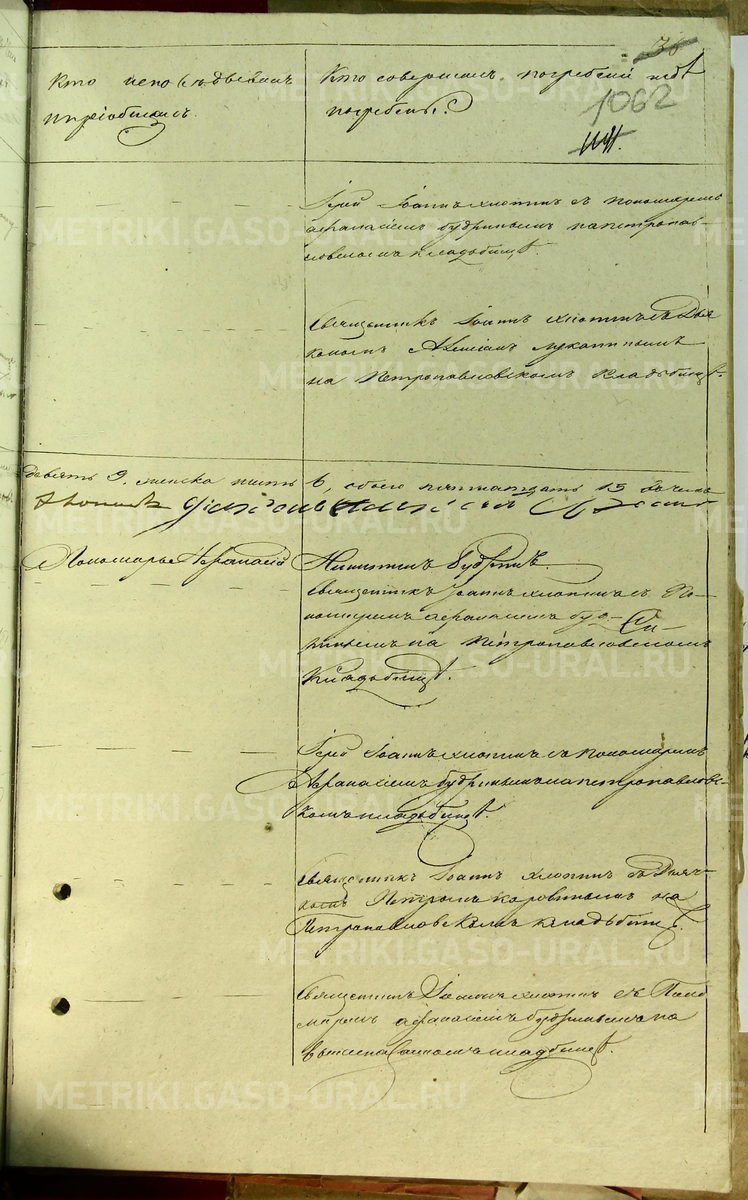 36
Кто исповѣдывалъ
и пріобщалъ.
Кто совершалъ погребеніе и гдѣ
погребены.
1062
Іерей Іоаннъ Хлопинъ съ пономаремъ
Афанасіемъ Будринымъ на петропав-
ловскомъ кладбищѣ.
Священникъ Іоаннъ Хлопинъ съ Дья
кономъ
на Петропавловскомъ кладьбищѣ.
девять 9. женска шесть 6, обоего пятнатцать 15 человекъ
Пономарь Афанасій Никитинъ Будринъ.
Священникъ Іоаннъ Хлопинъ съ По-
номаремъ Афанасіемъ Буд-
ринымъ на Петропавловскомъ
Кладьбищѣ.
Іерей Іоаннъ Хлопинъ съ пономаремъ
Афанасіемъ Будринымъ на петропавловс-
комъ кладьбищѣ.
Священникъ Іоаннъ Хлопинъ съ Дьяч-
комъ Петромъ Коровинымъ на
Петропавловскомъ кладьбищѣ.
Священникъ Іоаннъ Хлопинъ съ Поно
маремъ Афанасіемъ Будринымъ на
кладбищѣ.
METRIKI.GASO-URAL.RU